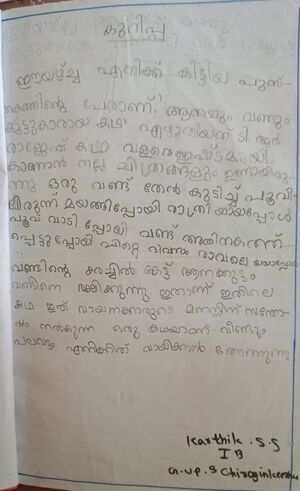 കുറിപ്പ്
ഈയഴ്ച്ച എനിക്ക് കിട്ടിയ പുസ്-
തകത്തിന്റെ പേരാണ് ആനയും വണ്ടും
കൂട്ടുകാരായ കഥ എഴുതിയത് ടി ആർ
രാജേഷ് കഥ വളരെഇഷ്ടമായി.
കാണാൻ നല്ല ചിത്രങ്ങളും ഉണ്ടായിരു-
ന്നു ഒരു വണ്ട് തേൻ കുടിച്ച് പൂവി-
ലിരുന്ന് മയങ്ങിപ്പോയി രാത്രിയായപ്പോൾ
പൂവ് വാടി പ്പോയി വണ്ട് അതിനകത്ത്
പ്പെട്ടുപ്പോയി പിറ്റെ ദിവസം രാവിലെ
വണ്ടിന്റെ കരച്ചിൽ കേട്ട് ആനക്കുട്ടം
വണ്ടിനെ രക്ഷിക്കുന്നു ഇതാണ് ഇതിലെ
കഥ. ഇത് വായനക്കാരുടെ മനസ്സിന് സന്തോ-
ഷം നൽകുന്ന ഒരു കഥയാണ് വീണ്ടും
പലവട്ടം എനിക്കിത് വായിക്കാൻ തോന്നുന്നു
Karthik. S.S
I B
G.U.P.S